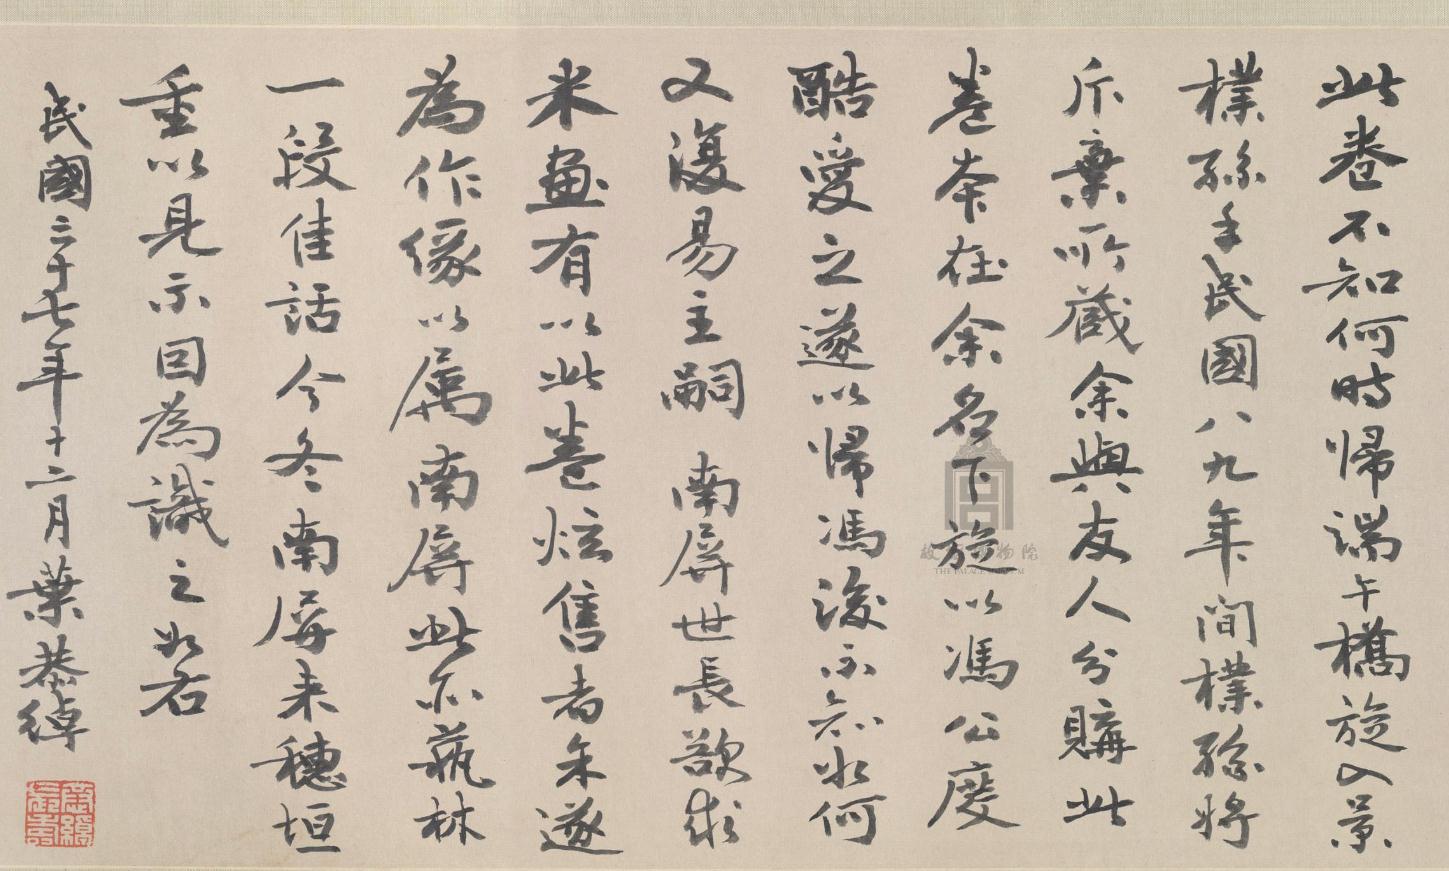 此卷不知何時歸端午橋旋入景
樸孫手民國八九年間樸孫將
斥棄所藏余與友人分購此
卷本在余名下旋以馮公度
酷愛之遂以歸馮後不知如何
又復易主嗣 南屏世長欲求
米畫有以此卷炫售者余遂
為作緣以屬南屏此亦藝林
一段佳話今冬南屏來穗垣
重以見示因為識之如右
民國三十七年十二月葉恭綽